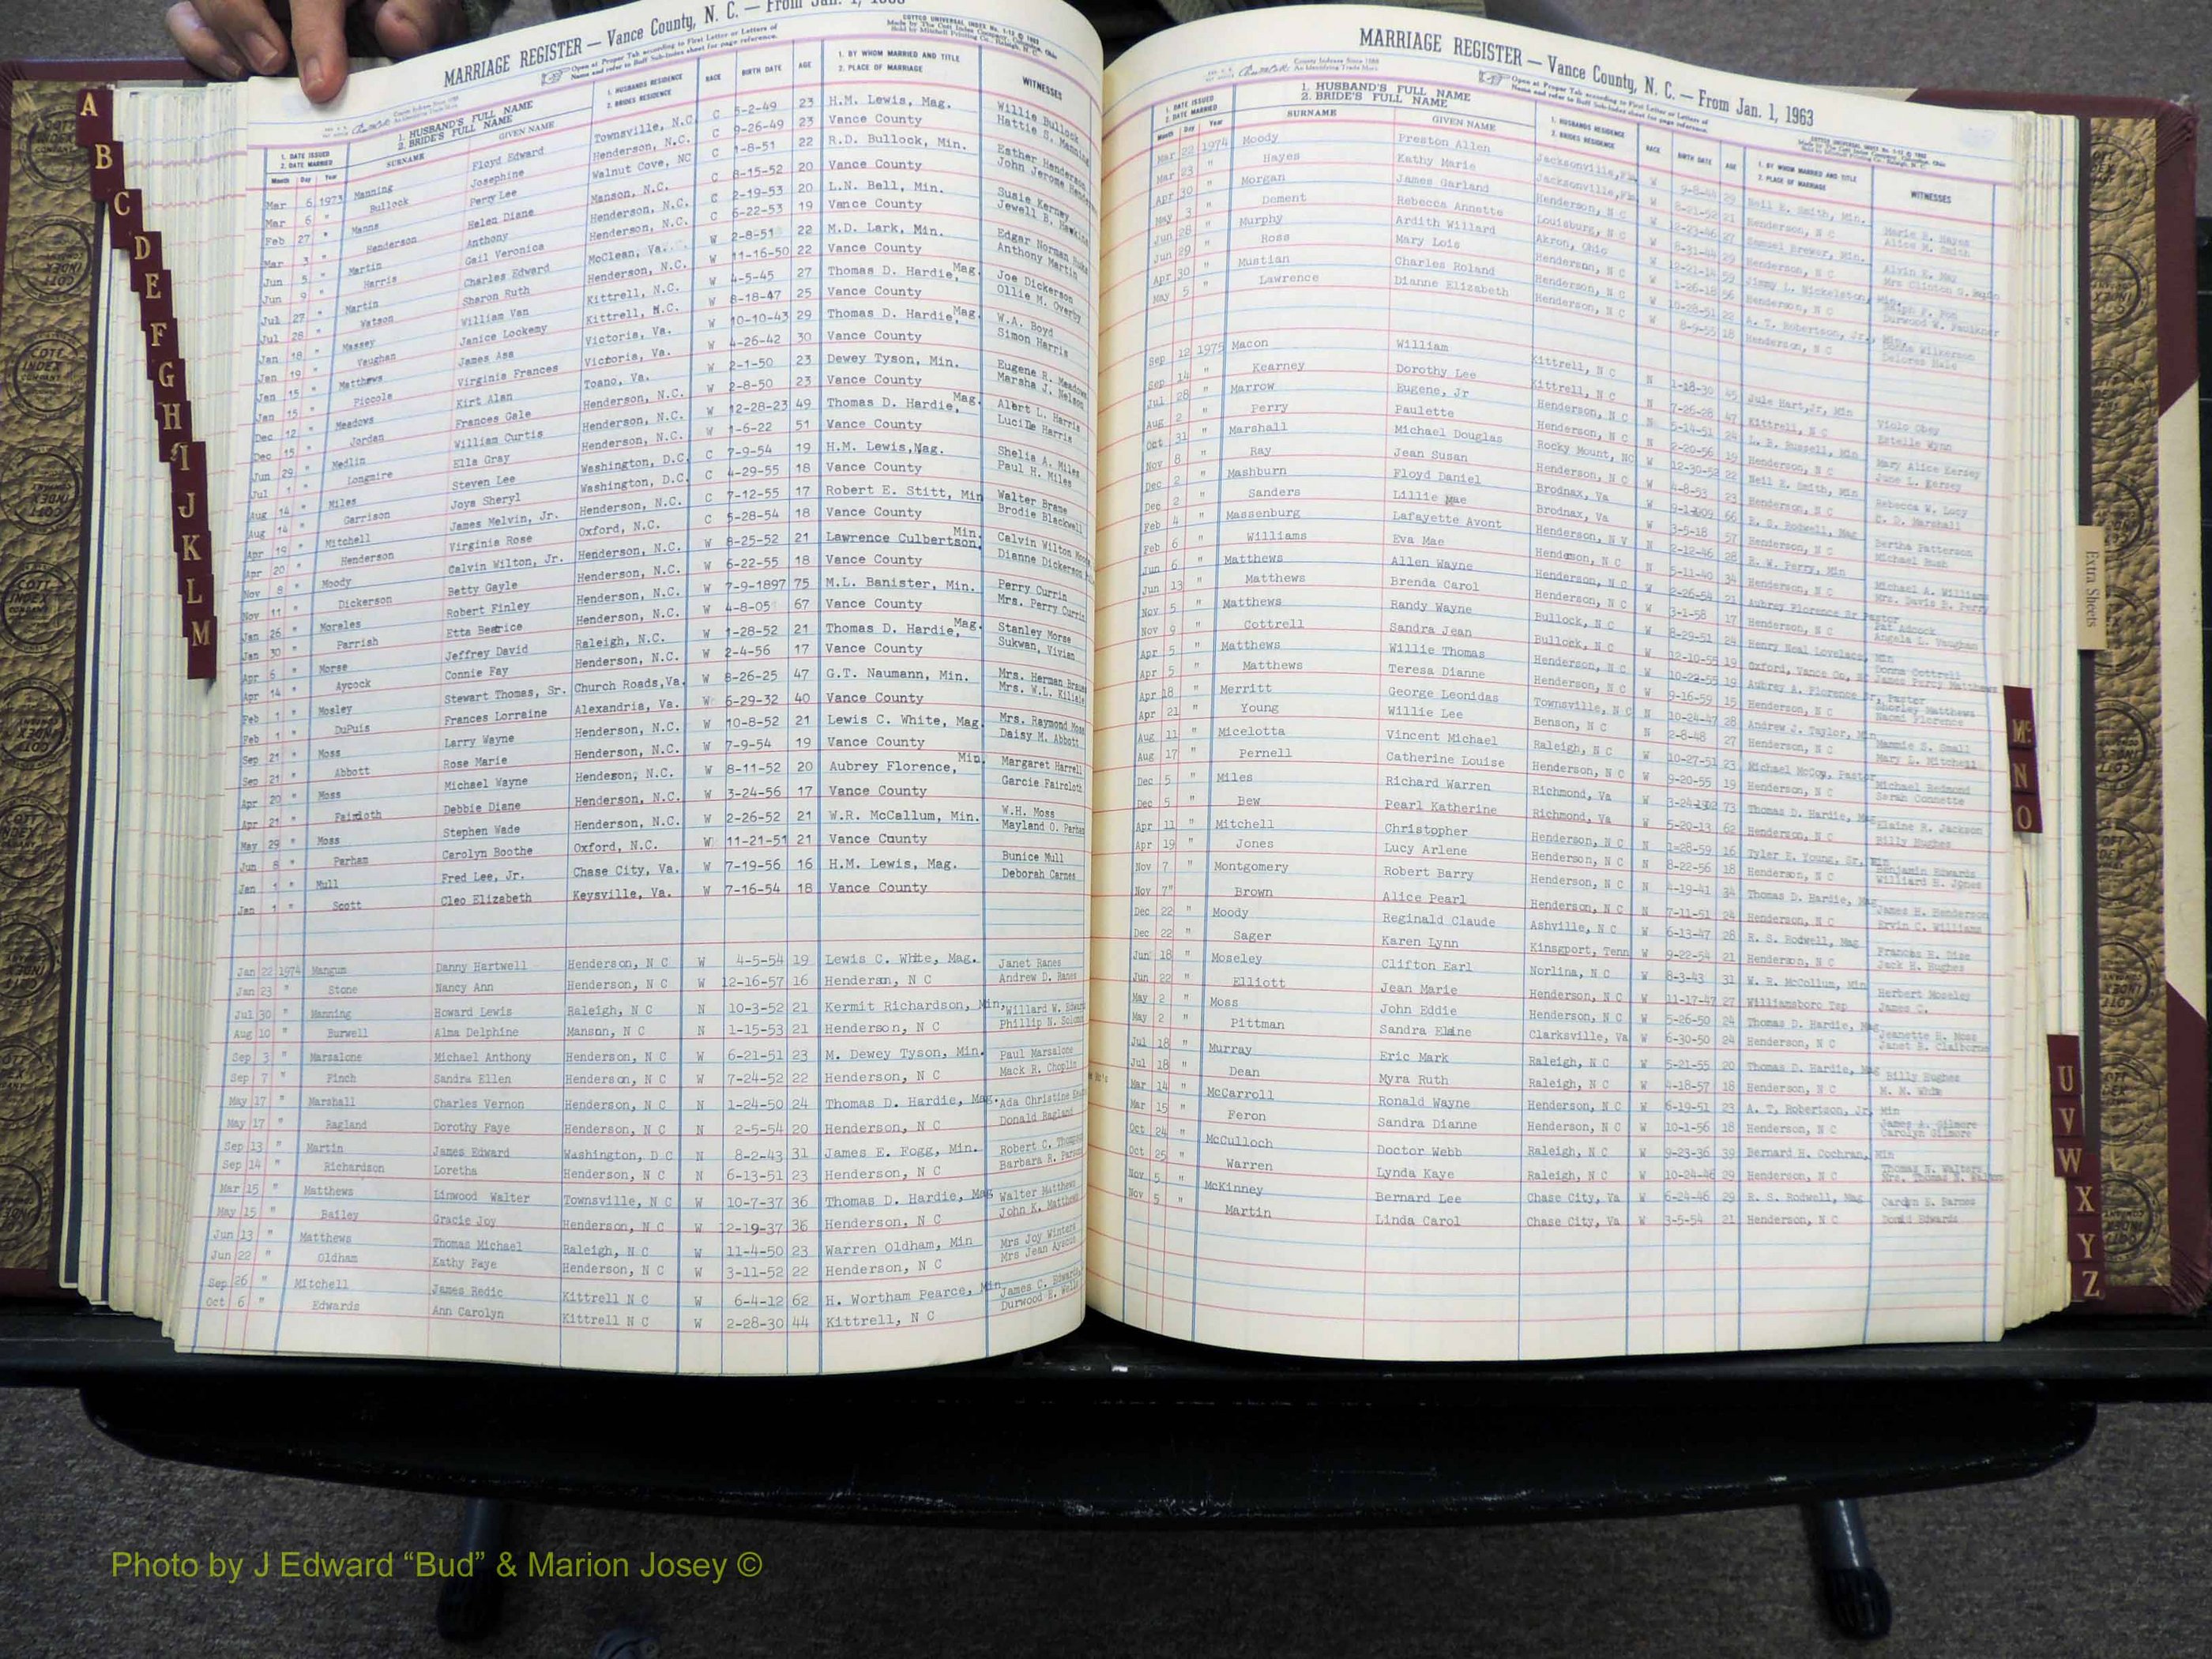 MARRIAGE REGISTER — Vance County, N. C. — From Jan. 1,
COTTCO UNIVERSAL INDEX
Open at Proper Tab according to First Letter or Letters of
Name and refer to Buff Sub-Index sheet for page reference.
1. DATE ISSUED 2. DATE MARRIED Month Day Year 1. HUSBAND'S FULL NAME 2. BRIDE'S FULL NAME SURNAME GIVEN NAME 1. HUSBANDS RESIDENCE 2. BRIDES RESIDENCE RACE BIRTH DATE AGE 1. BY WHOM MARRIED AND TITLE 2. PLACE OF MARRIAGE WITNESSES
Mar 6 1973 Manning Floyd Edward Townsville, N.C. C 5-2-49 23 H.M. Lewis, Mag. Willie Bullock
Mar 6 " Bullock Josephine Henderson, N.C. C 9-26-49 23 Vance County Hattie S. Manning
Feb 27 " Manns Perry Lee Walnut Cove, NC C 1-8-51 22 R.D. Bullock, Min. Esther Henderson
Mar 3 " Henderson Helen Diane Manson, N.C. C 8-15-52 20 Vance County John Jerome
Jun 5 " Martin Anthony Henderson, N.C. C 2-19-53 20 L.N. Bell, Min. Susie Kerney
Jun 9 " Harris Gail Veronica Henderson, N.C. C 6-22-53 19 Vance County Jewell B. Hawkins
Jul 27 " Martin Charles Edward McClean, Va. W 2-8-51 22 M.D. Lark, Min. Edgar Norman
Jul 28 " Watson Sharon Ruth Henderson, N.C. W 11-16-50 22 Vance County Anthony Martin
Jan 18 " Massey William Van Kittrell, N.C. W 4-5-45 27 Thomas D. Hardie, Mag. Joe Dickerson
Jan 19 " Vaughan Janice Lockemy Kittrell, N.C. W 8-18-47 25 Vance County Ollie M. Overby
Jan 15 " Matthews James Asa Victoria, Va. W 10-10-43 29 Thomas D. Hardie, Mag. W.A. Boyd
Jan 15 " Piccola Virginia Frances Victoria, Va. W 4-26-42 30 Vance County Simon Harris
Dec 12 " Meadows Kirt Alan Toano, Va. W 2-1-50 23 Dewey Tyson, Min. Eugene R. Meadows
Dec 15 " Jordan Frances Gale Henderson, N.C. W 2-8-50 23 Vance County Marsha J. Nelson
Jun 29 " Medlin William Curtis Henderson, N.C. W 12-28-23 49 Thomas D. Hardie, Mag. Albert L. Harris
Jul 1 " Longmire Ella Gray Henderson, N.C. W 1-6-22 51 Vance County Lucille Harris
Aug 14 " Miles Steven Lee Washington, D.C. C 7-9-54 19 H.M. Lewis, Mag. Shelia A. Miles
Aug 14 " Garrison Joya Sheryl Washington, D.C. C 4-29-55 18 Vance County Paul H. Miles
Apr 19 " Mitchell James Melvin, Jr. Henderson, N.C. C 7-12-55 17 Robert E. Stitt, Min Walter Brame
Apr 20 " Henderson Virginia Rose Oxford, N.C. C 5-28-54 18 Vance County Brodie Blackwell
Nov 8 " Moody Calvin Wilton, Jr. Henderson, N.C. W 8-25-52 21 Lawrence Culbertson, Min. Calvin Wilton
Nov 11 " Dickerson Betty Gayle Henderson, N.C. W 6-22-55 18 Vance County Dianne Dickerson
Jan 26 " Moreles Robert Finley Henderson, N.C. W 7-9-1897 75 M.L. Banister, Min. Perry Currin
Jan 30 " Parrish Etta Beatrice Henderson, N.C. W 4-8-05 67 Vance County Mrs. Perry Currin
Apr 6 " Morse Jeffrey David Raleigh, N.C. W 1-28-52 21 Thomas D. Hardie, Mag. Stanley Morse
Apr 14 " Aycock Connie Fay Henderson, N.C. W 2-4-56 17 Vance County Sukwan, Vivian
Feb 1 " Mosley Stewart Thomas, Sr. Church Roads, Va. W 8-26-25 47 G.T. Naumann, Min. Mrs. Herman
Feb 1 " DuPuis Frances Lorraine Alexandria, Va. W 6-29-32 40 Vance County Mrs. W.L.
Sep 21 " Moss Larry Wayne Henderson, N.C. W 10-8-52 21 Lewis C. White, Mag. Mrs. Raymond Moss
Sep 21 " Abbott Rose Marie Henderson, N.C. W 7-9-54 19 Vance County Daisy M. Abbott
Apr 20 " Moss Michael Wayne Henderson, N.C. W 8-11-52 20 Aubrey Florence, Min. Margaret Harrell
Apr 21 " Faircloth Debbie Diane Henderson, N.C. W 3-24-56 17 Vance County Garcie Faircloth
May 29 " Moss Stephen Wade Henderson, N.C. W 2-26-52 21 W.R. McCallum, Min. W.H. Moss
Jun 8 " Parham Carolyn Boothe Oxford, N.C. W 11-21-51 21 Vance County Mayland O. Parham
Jan 1 " Mull Fred Lee, Jr. Chase City, Va. W 7-19-56 16 H.M. Lewis, Mag. Bunice Mull
Jan 1 " Scott Cleo Elizabeth Keysville, Va. W 7-16-54 18 Vance County Deborah Carnes
Jan 22 1974 Mangum Danny Hartwell Henderson, N C W 4-5-54 19 Lewis C. White, Mag. Janet Ranes
Jan 23 " Stone Nancy Ann Henderson, N C W 12-16-57 16 Henderson, N C Andrew D. Ranes
Jul 30 " Manning Howard Lewis Raleigh, N C N 10-3-52 21 Kermit Richardson, Min, Willard W.
Aug 10 " Burwell Alma Delphine Manson, N C N 1-15-53 21 Henderson, N C Phillip N.
Sep 3 " Marsalone Michael Anthony Henderson, N C W 6-21-51 23 M. Dewey Tyson, Min. Paul Marsalone
Sep 7 " Finch Sandra Ellen Henderson, N C W 7-24-52 22 Henderson, N C Mack R. Choplin
May 17 " Marshall Charles Vernon Henderson, N C N 1-24-50 24 Thomas D. Hardie, Mag. Ada Christine
May 17 " Ragland Dorothy Faye Henderson, N C N 2-5-54 20 Henderson, N C Donald Ragland
Sep 13 " Martin James Edward Washington, D C N 8-2-43 31 James E. Fogg, Min. Robert C.
Sep 14 " Richardson Loretha Henderson, N C N 6-13-51 23 Henderson, N C Barbara R.
Mar 15 " Matthews Linwood Walter Townsville, N C W 10-7-37 36 Thomas D. Hardie, Mag Walter Matthews
May 15 " Bailey Gracie Joy Henderson, N C W 12-19-37 36 Henderson, N C John K. Matthews
Jun 13 " Matthews Thomas Michael Raleigh, N C W 11-4-50 23 Warren Oldham, Min Mrs Joy Winters
Jun 22 " Oldham Kathy Faye Henderson, N C W 3-11-52 22 Henderson, N C Mrs Jean Ayscue
Sep 26 " Mitchell James Redic Kittrell N C W 6-4-12 62 H. Wortham Pearce, Min James C. Edwards
Oct 6 " Edwards Ann Carolyn Kittrell N C W 2-28-30 44 Kittrell, N C Durwood H.
MARRIAGE REGISTER — Vance County, N. C. — From Jan. 1, 1963
County Indexes Since 1888
An Identifying Trade Mark
Open at Proper Tab according to First Letter or Letters of
Name and refer to Buff Sub-Index sheet for page reference.
1. DATE ISSUED 2. DATE MARRIED Month Day Year 1. HUSBAND'S FULL NAME 2. BRIDE'S FULL NAME SURNAME GIVEN NAME 1. HUSBANDS RESIDENCE 2. BRIDES RESIDENCE RACE BIRTH DATE AGE 1. BY WHOM MARRIED AND TITLE 2. PLACE OF MARRIAGE WITNESSES
Mar 22 1974 Moody Preston Allen Jacksonville, Fla. W 9-8-44 29 Neil E. Smith, Min. Marie E. Hayes
Mar 23 " Hayes Kathy Marie Jacksonville, Fla. W 8-21-52 21 Henderson, N C Alice M. Smith
Apr 30 " Morgan James Garland Henderson, N C W 12-23-46 27 Samuel Brewer, Min. Alvin E. May
May 3 " Dement Rebecca Annette Louisburg, N C W 8-31-44 29 Henderson, N C Mrs Clinton
Jun 28 " Murphy Ardith Willard Akron, Ohio W 12-21-14 59 Jimmy L. Nickelston, Min. Ralph F. Ron
Jun 29 " Ross Mary Lois Henderson, N C W 1-26-18 56 Henderson, N C Durwood W. Faulkner
Apr 30 " Mustian Charles Roland Henderson, N C W 10-28-51 22 A. T. Robertson, Jr., Wilkerson
May 5 " Lawrence Dianne Elizabeth Henderson, N C W 8-9-55 18 Henderson, N C Delores Hale
Sep 12 1975 Macon William Kittrell, N C N 1-18-30 45 Jule Hart, Jr, Min Violo Obey
Sep 14 " Kearney Dorothy Lee Kittrell, N C N 7-26-28 47 Kittrell, N C Estelle Wynn
Jul 28 " Marrow Eugene, Jr Henderson, N C N 5-14-51 24 L. B. Russell, Min Mary Alice Kersey
Aug 2 " Perry Paulette Henderson, N C N 2-20-56 19 Henderson, N C June L. Kersey
Oct 31 " Marshall Michael Douglas Rocky Mount, NC W 12-30-52 22 Neil E. Smith, Min Rebecca W. Lucy
Nov 8 " Ray Jean Susan Henderson, N C W 4-8-53 23 Henderson, N C Marshall
Dec 2 " Mashburn Floyd Daniel Brodnax, Va W 9-1-1909 66 R. S. Rodwell, Mag Bertha Patterson
Dec 2 " Sanders Lillie Mae Brodnax, Va W 3-5-18 57 Henderson, N C Michael Bush
Feb 4 " Massenburg Lafayette Avont Henderson, N V N 2-12-46 28 R. W. Perry, Min Michael A. Williams
Feb 6 " Williams Eva Mae Henderson, N C N 5-11-40 34 Henderson, N C Mrs. Davis R. Perry
Jun 6 " Matthews Allen Wayne Henderson, N C W 2-26-54 21 Aubrey Florence Sr Pastor Pat Adcock
Jun 13 " Matthews Brenda Carol Henderson, N C W 3-1-58 17 Henderson, N C Angela E. Vaughan
Nov 5 " Matthews Randy Wayne Bullock, N C W 8-29-51 24 Henry Neal Lovelace, Min Donna Cottrell
Nov 9 " Cottrell Sandra Jean Bullock, N C W 12-10-55 19 Oxford, Vance Co, N C James Perry Matthews
Apr 5 " Matthews Willie Thomas Henderson, N C W 10-22-55 19 Aubrey A. Florence Sr, Pastor Shirley Matthews
Apr 5 " Matthews Teresa Dianne Henderson, N C W 9-16-59 15 Henderson, N C Naomi Florence
Apr 18 " Merritt George Leonidas Townsville, N C N 10-24-47 28 Andrew J. Taylor, Min Mammie S. Small
Apr 21 " Young Willie Lee Benson, N C N 2-8-48 27 Henderson, N C Mary L. Mitchell
Aug 11 " Micelotta Vincent Michael Raleigh, N C W 10-27-51 23 Michael McCoy, Pastor Michael Redmond
Aug 17 " Pernell Catherine Louise Henderson, N C W 9-20-55 19 Henderson, N C Sarah Connette
Dec 5 " Miles Richard Warren Richmond, Va W 3-24-1902 73 Thomas D. Hardie, Mag Elaine R. Jackson
Dec 5 " Bew Pearl Katherine Richmond, Va W 5-20-13 62 Henderson, N C Billy Hughes
Apr 11 " Mitchell Christopher Henderson, N C N 1-28-59 16 Tyler E. Young, Sr, Min Benjamin Edwards
Apr 19 " Jones Lucy Arlene Henderson, N C N 8-22-56 18 Henderson, N C Williard H. Jones
Nov 7 " Montgomery Robert Barry Henderson, N C N 4-19-41 34 Thomas D. Hardie, Mag James H. Henderson
Nov 7" Brown Alice Pearl Henderson, N C N 7-11-51 24 Henderson, N C Ervin C. Williams
Dec 22 " Moody Reginald Claude Ashville, N C W 6-13-47 28 R. S. Rodwell, Mag Frances H. Dise
Dec 22 " Sager Karen Lynn Kinsgport, Tenn W 9-22-54 21 Henderson, N C Jack H. Hughes
Jun 18 " Moseley Clifton Earl Norlina, N C W 8-3-43 31 W. R. McCollum, Min Herbert Moseley
Jun 22 " Elliott Jean Marie Henderson, N C W 11-17-47 27 Williamsboro Twp James C.
May 2 " Moss John Eddie Henderson, N C W 5-26-50 24 Thomas D. Hardie, Mag Jeanette H. Moss
May 2 " Pittman Sandra Elaine Clarksville, Va W 6-30-50 24 Henderson, N C Janet R. Claiborne
Jul 18 " Murray Eric Mark Raleigh, N C W 5-21-55 20 Thomas D. Hardie, Mag Billy Hughes
Jul 18 " Dean Myra Ruth Raleigh, N C W 4-18-57 18 Henderson, N C M. M. White
Mar 14 " McCarroll Ronald Wayne Henderson, N C W 6-19-51 23 A. T. Robertson, Jr, Min James A. Gilmore
Mar 15 " Feron Sandra Dianne Henderson, N C W 10-1-56 18 Henderson, N C Carolyn Gilmore
Oct 24 " McCulloch Doctor Webb Raleigh, N C W 9-23-36 39 Bernard H. Cochran, Min Thomas N. Walters
Oct 25 " Warren Lynda Kaye Raleigh, N C W 10-24-46 29 Henderson, N C Mrs. Thomas N. Walters
Nov 5 " McKinney Bernard Lee Chase City, Va W 6-24-46 29 R. S. Rodwell, Mag Cardyn S. Barnes
Nov 5 " Martin Linda Carol Chase City, Va W 3-5-54 21 Henderson, N C Donald Edwards
A
B
C
D
E
F
G
H
I
J
K
L
M
Extra Sheets
Mc
N
O
U
V
W
X
Y
Z
Photo by J Edward “Bud” & Marion Josey ©